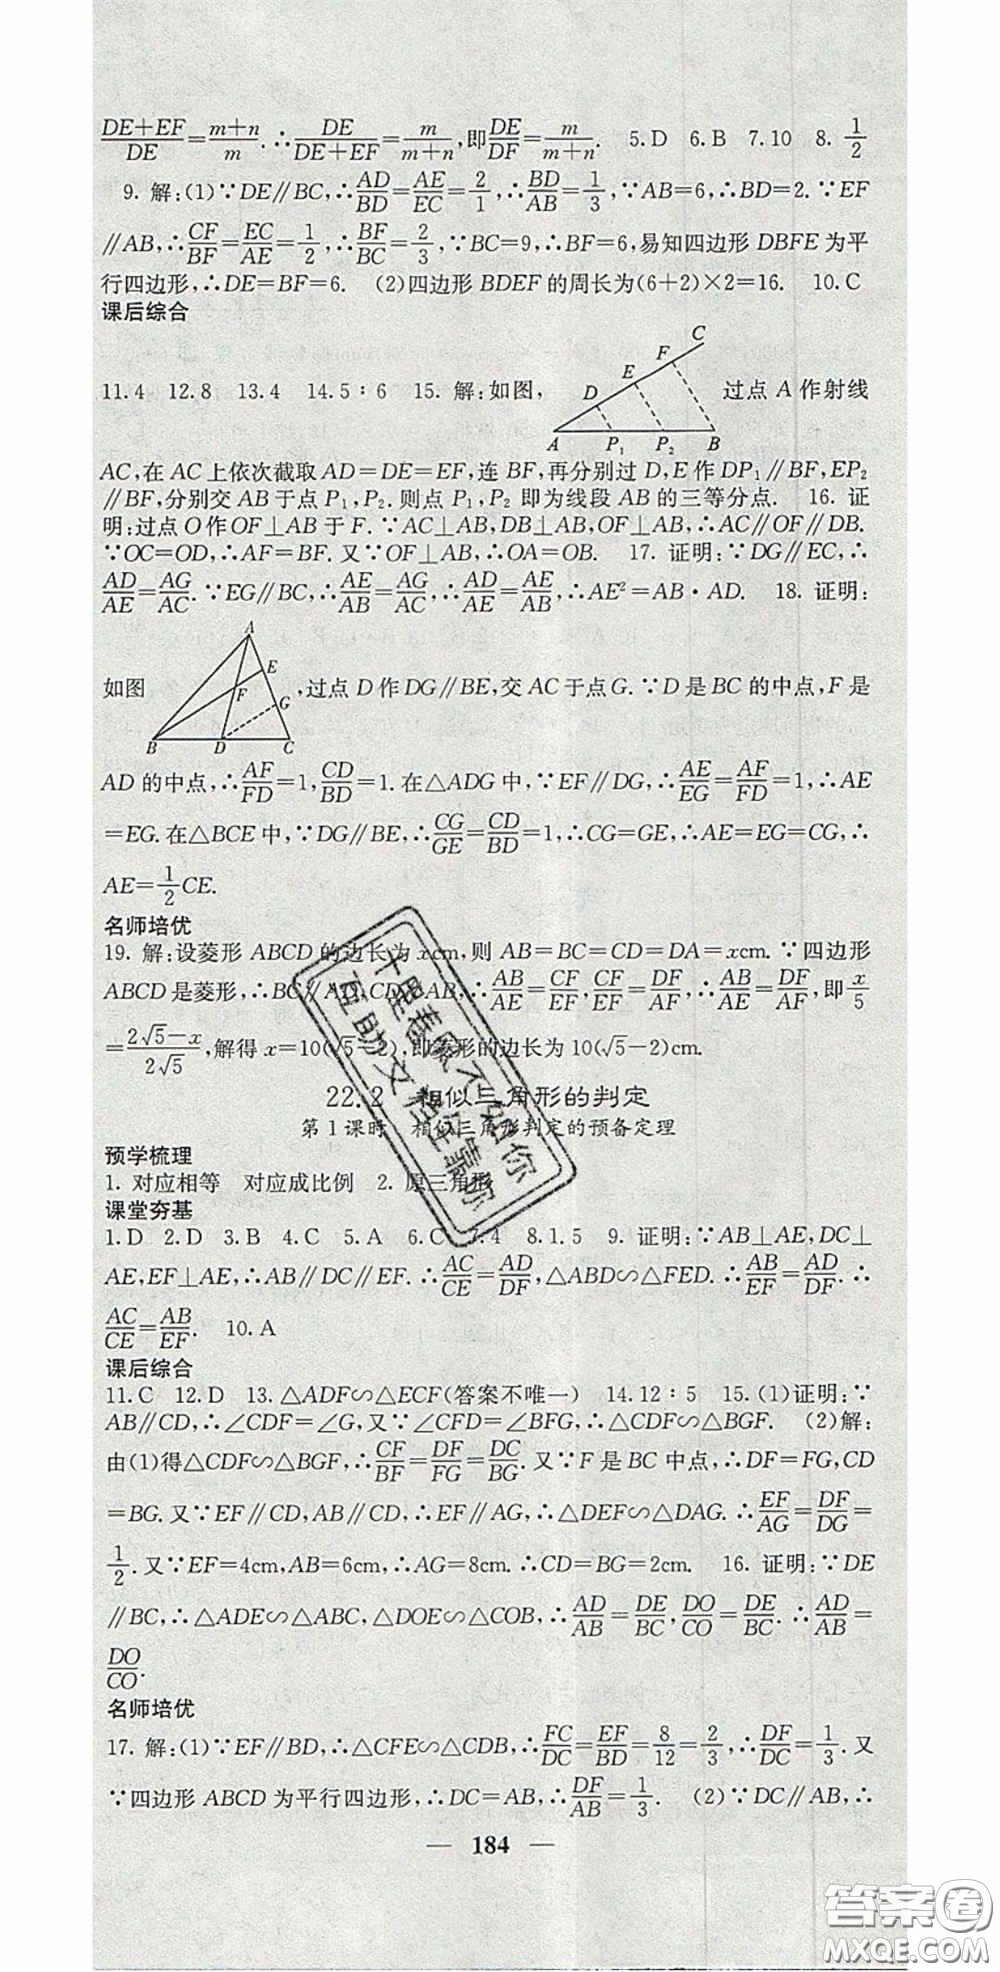 DE+EF/DE=m+n/m.∴DE/DE+EF=m/m+n,即DE/DF=m/m+n. 5.D 6.B 7.10 8.1/2
9.解:(1)∵DE∥BC,∴AD/BD=AE/EC=2/1,∴BD/AB=1/3,∵AB=6,∴BD=2.∵EF
∥AB,∴CF/BF=EC/AE=1/2,∴BF/BC=2/3,∵BC=9,∴BF=6,易知四边形DBFE为平
行四边形,∴DE=BF=6. (2)四边形BDEF的周长为(6+2)×2=16. 10.C
课后综合
11.4 12.8 13.4 14.5∶6 15.解:如图, 过点A作射线
A P₁ P₂ B D E F C
AC,在AC上依次截取AD=DE=EF,连BF,再分别过D,E作DP₁∥BF,EP₂
∥BF,分别交AB于点P₁,P₂.则点P₁,P₂即为线段AB的三等分点. 16.证
明:过点O作OF⊥AB于F.∵AC⊥AB,DB⊥AB,OF⊥AB,∴AC∥OF∥DB.
∵OC=OD,∴AF=BF.又∵OF⊥AB,∴OA=OB. 17.证明:∵DG∥EC,∴
AD/AE=AG/AC.∵EG∥BC,∴AE/AB=AG/AC,∴AD/AE=AE/AB,∴AE²=AB·AD. 18.证明:
如图 ,过点D作DG∥BE,交AC于点G.∵D是BC的中点,F是
A E F G B D C
AD的中点,∴AF/FD=1,CD/BD=1.在△ADG中,∵EF∥DG,∴AE/EG=AF/FD=1,∴AE
=EG.在△BCE中,∵DG∥BE,∴CG/GE=CD/BD=1,∴CG=GE,∴AE=EG=CG,∴
AE=1/2CE.
名师培优
19.解:设菱形ABCD的边长为xcm,则AB=BC=CD=DA=xcm.∵四边形
ABCD是菱形,∴BC∥AD,CD∥AB,∴AB/AE=CF/EF,CF/EF=DF/AF,∴AB/AE=DF/AF,即x/5
=2√5−x/2√5,解得x=10(√5−2),即菱形的边长为10(√5−2)cm.
22.2 相似三角形的判定
第1课时 相似三角形判定的预备定理
预学梳理
1.对应相等 对应成比例 2.原三角形
课堂夯基
1.D 2.D 3.B 4.C 5.A 6.C 7.4 8.1.5 9.证明:∵AB⊥AE,DC⊥
AE,EF⊥AE,∴AB∥DC∥EF.∴AC/CE=AD/DF,△ABD∽△FED.∴AB/EF=AD/DF.∴
AC/CE=AB/EF. 10.A
课后综合
11.C 12.D 13.△ADF∽△ECF(答案不唯一) 14.12∶5 15.(1)证明:∵
AB∥CD,∴∠CDF=∠G,又∵∠CFD=∠BFG,∴△CDF∽△BGF. (2)解:
由(1)得△CDF∽△BGF,∴CF/BF=DF/FG=DC/BG.又∵F是BC中点,∴DF=FG,CD
=BG.又∵EF∥CD,AB∥CD,∴EF∥AG,∴△DEF∽△DAG.∴EF/AG=DF/DG=
1/2.又∵EF=4cm,AB=6cm,∴AG=8cm.∴CD=BG=2cm. 16.证明:∵DE
∥BC,∴△ADE∽△ABC,△DOE∽△COB,∴AD/AB=DE/BC,DO/CO=DE/BC.∴AD/AB=
DO/CO.
名师培优
17.解:(1)∵EF∥BD,∴△CFE∽△CDB,∴FC/DC=EF/BD=8/12=2/3,∴DF/DC=1/3.又
∵四边形ABCD为平行四边形,∴DC=AB,∴DF/AB=1/3. (2)∵DC∥AB,∴
— 184 —
答案圈
MXQE.COM